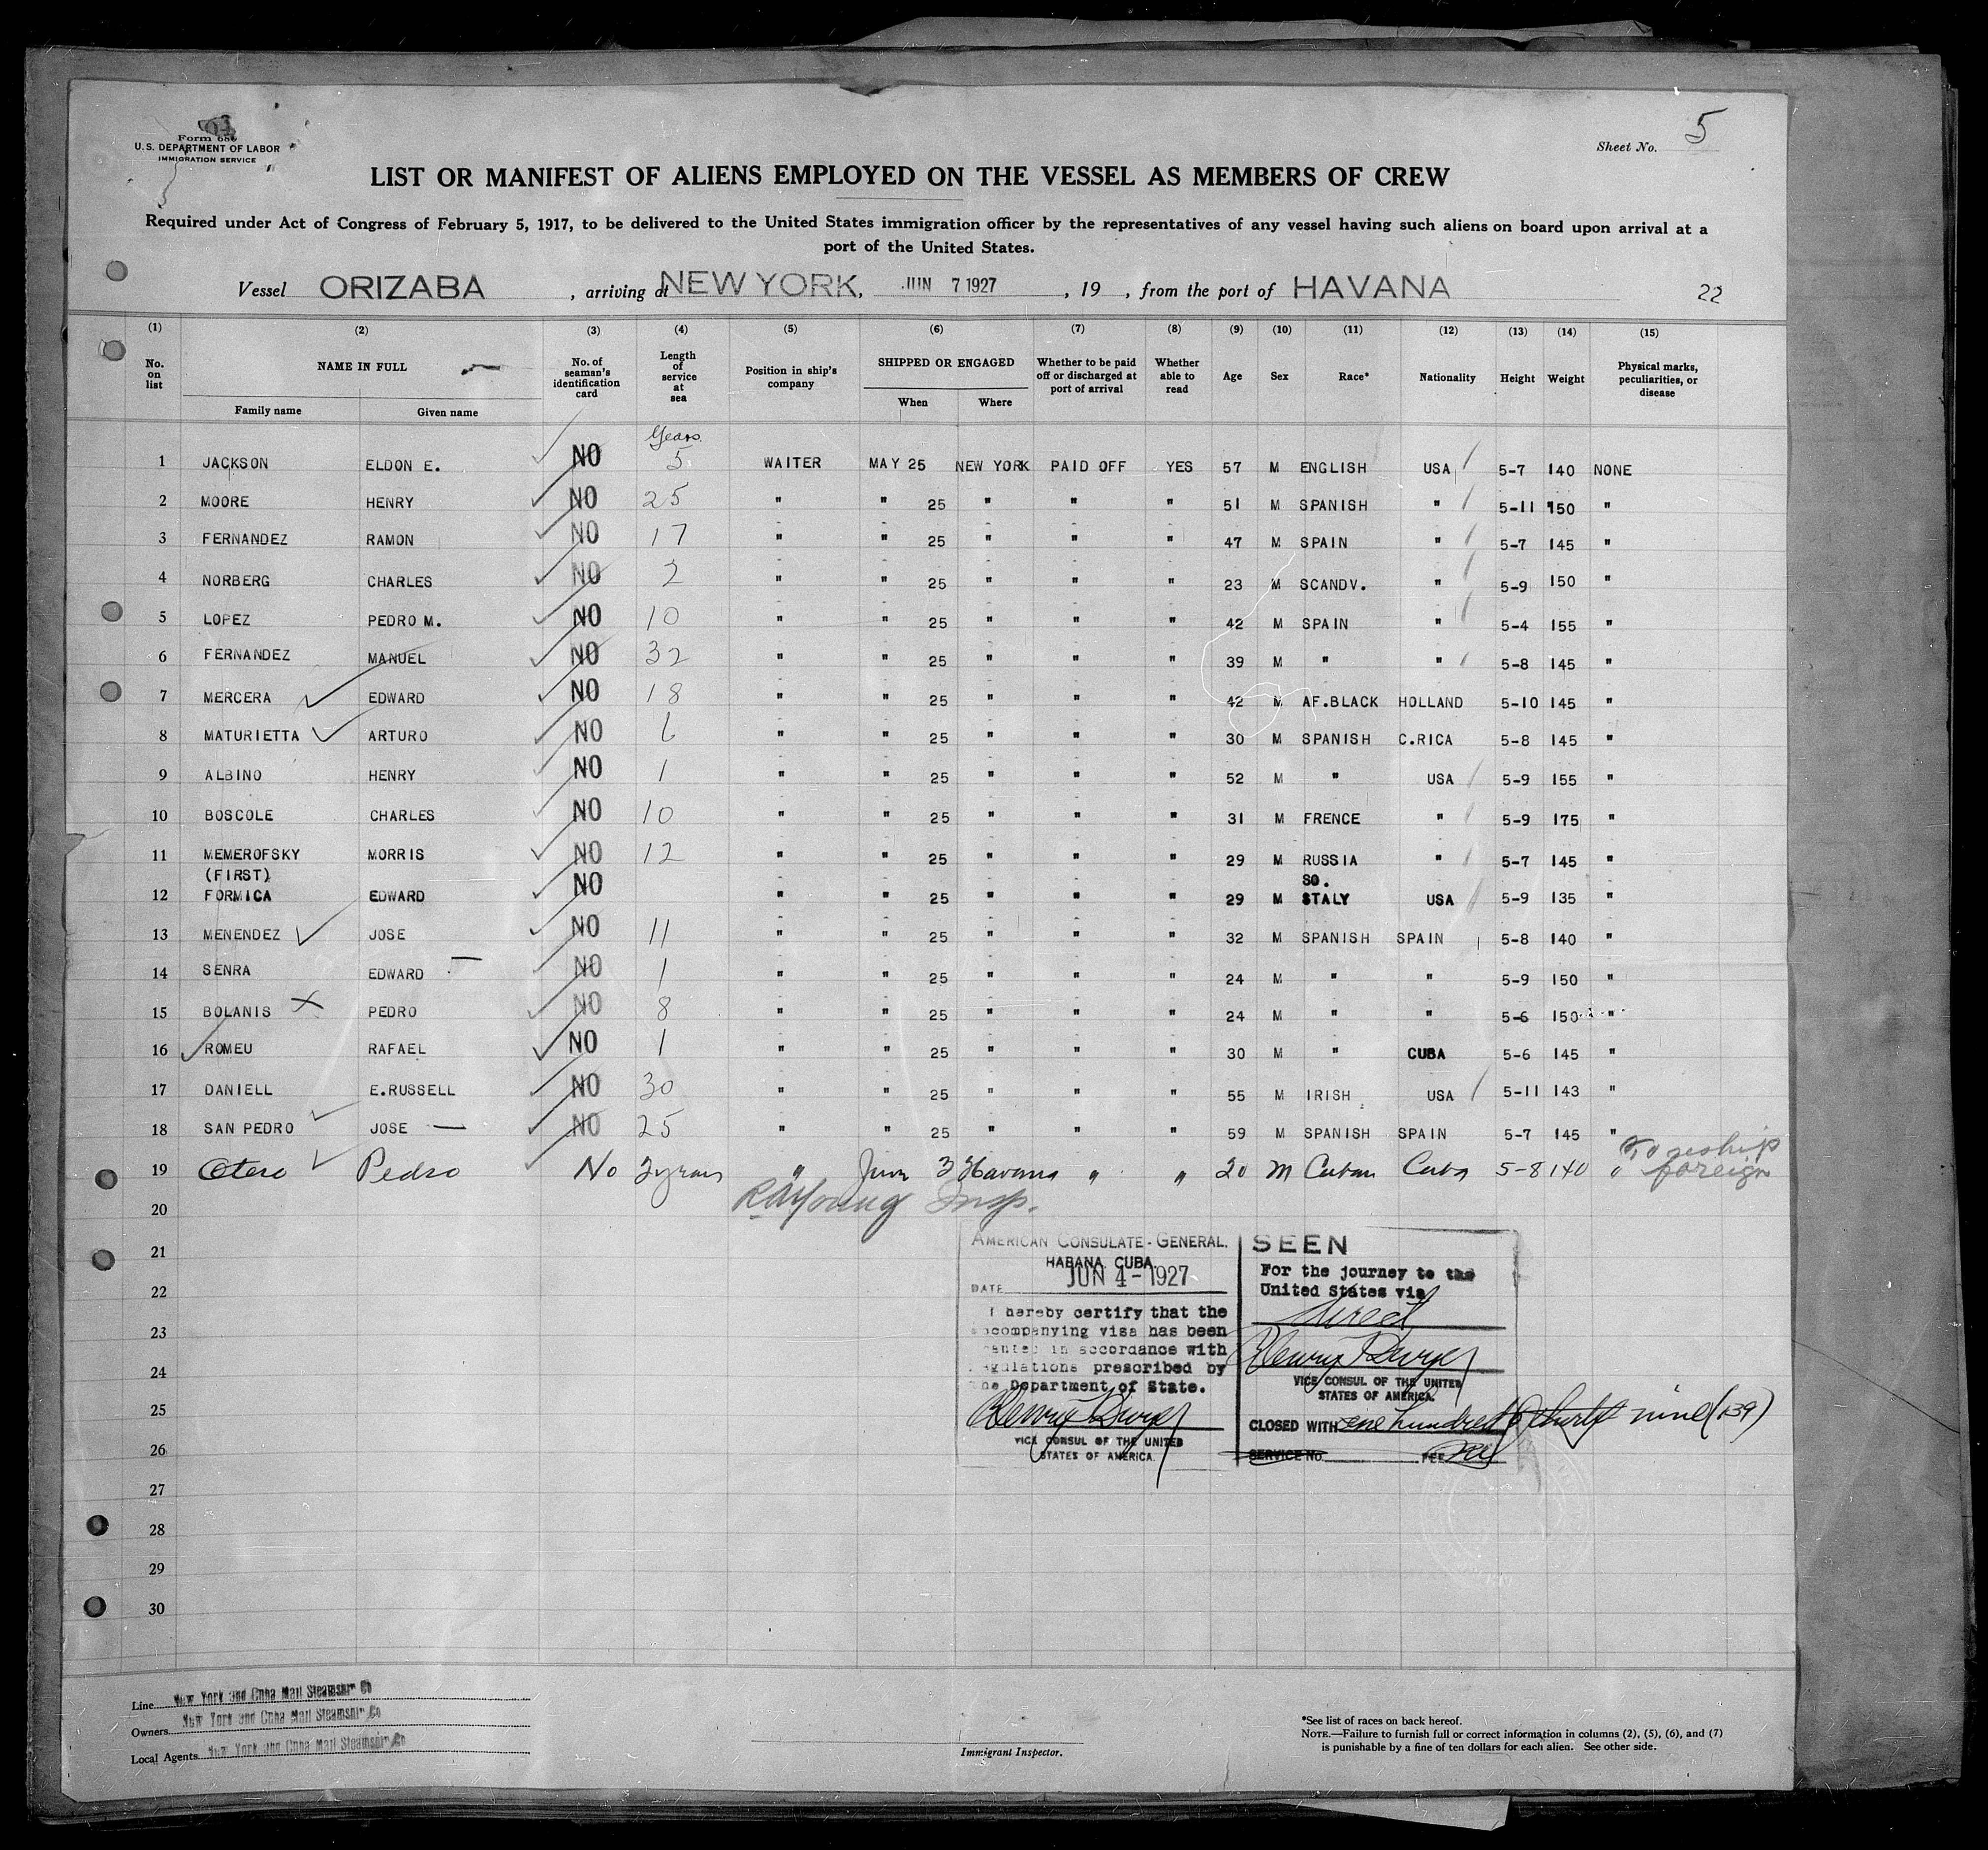 Form 680
U.S. DEPARTMENT OF LABOR
IMMIGRATION SERVICE
Sheet No. 5
LIST OR MANIFEST OF ALIENS EMPLOYED ON THE VESSEL AS MEMBERS OF CREW
Required under Act of Congress of February 5, 1917, to be delivered to the United States immigration officer by the representatives of any vessel having such aliens on board upon arrival at a
port of the United States.
Vessel ORIZABA , arriving at NEW YORK, JUN 7 1927 , 19 , from the port of HAVANA 22
(1) (2) (3) (4) (5) (6) (7) (8) (9) (10) (11) (12) (13) (14) (15)
No. on list NAME IN FULL No. of seaman's identification card Length of service at sea Position in ship's company SHIPPED OR ENGAGED Whether to be paid off or discharged at port of arrival Whether able to read Age Sex Race* Nationality Height Weight Physical marks, peculiarities, or disease
Family name Given name When Where
Years
1 JACKSON ELDON E. NO 5 WAITER MAY 25 NEW YORK PAID OFF YES 57 M ENGLISH USA 5-7 140 NONE
2 MOORE HENRY NO 25 " " 25 " " " 51 M SPANISH " 5-11 150 "
3 FERNANDEZ RAMON NO 17 " " 25 " " " 47 M SPAIN " 5-7 145 "
4 NORBERG CHARLES NO 2 " " 25 " " " 23 M SCANDV. " 5-9 150 "
5 LOPEZ PEDRO M. NO 10 " " 25 " " " 42 M SPAIN " 5-4 155 "
6 FERNANDEZ MANUEL NO 32 " " 25 " " " 39 M " " 5-8 145 "
7 MERCERA EDWARD NO 18 " " 25 " " " 42 M AF.BLACK HOLLAND 5-10 145 "
8 MATURIETTA ARTURO NO 6 " " 25 " " " 30 M SPANISH C.RICA 5-8 145 "
9 ALBINO HENRY NO 1 " " 25 " " " 52 M " USA 5-9 155 "
10 BOSCOLE CHARLES NO 10 " " 25 " " " 31 M FRENCE " 5-9 175 "
11 MEMEROFSKY MORRIS NO 12 " " 25 " " " 29 M RUSSIA " 5-7 145 "
(FIRST) SO.
12 FORMICA EDWARD NO " " 25 " " " 29 M STALY USA 5-9 135 "
13 MENENDEZ JOSE NO 11 " " 25 " " " 32 M SPANISH SPAIN 5-8 140 "
14 SENRA EDWARD NO 1 " " 25 " " " 24 M " " 5-9 150 "
15 BOLANIS PEDRO NO 8 " " 25 " " " 24 M " " 5-6 150 "
16 ROMEU RAFAEL NO 1 " " 25 " " " 30 M " CUBA 5-6 145 "
17 DANIELL E.RUSSELL NO 30 " " 25 " " " 55 M IRISH USA 5-11 143 "
18 SAN PEDRO JOSE NO 25 " " 25 " " " 59 M SPANISH SPAIN 5-7 145 "
19 Otero Pedro No " June 3 Havana " " 20 M Cuban Cuba 5-8 140 " To reship foreign
20 Insp.
21
22
23
24
25
26
27
28
29
30
AMERICAN CONSULATE-GENERAL.
HABANA, CUBA.
DATE JUN 4-1927
I hereby certify that the
accompanying visa has been
granted in accordance with
regulations prescribed by
the Department of State.
Henry Dwyer
VICE CONSUL OF THE UNITED
STATES OF AMERICA.
SEEN
For the journey to the
United States via
direct
Henry Dwyer
VICE CONSUL OF THE UNITED
STATES OF AMERICA.
CLOSED WITH one hundred & thirty nine (139)
SERVICE NO. FEE
Line New York and Cuba Mail Steamship Co
Owners New York and Cuba Mail Steamship Co
Local Agents New York and Cuba Mail Steamship Co
Immigrant Inspector.
*See list of races on back hereof.
NOTE.—Failure to furnish full or correct information in columns (2), (5), (6), and (7)
is punishable by a fine of ten dollars for each alien. See other side.